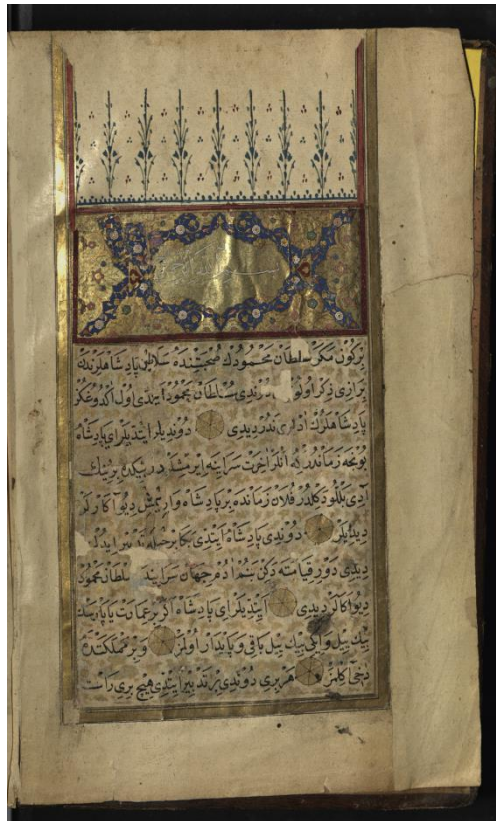 بسم الله الرحمن
بركون مكر سلطان محمودك صحبتنده سلاطين پادشاهلرندن
برازی ذكر اولو دوندی سلطان محمود ایتدی اول اكدوغكز
پادشاهلرك ادلری ندر دیدی دوندیلر ایتدیلر ای پادشاه
بونجه زماندر كه انلر اخرت سراینه ایرمشلدر دیكده برینك
آدی بللو دكلدر فلان زمانده بر پادشاه وار ایمش دیو آكارلر
دیدیلر دوندی پادشاه ایتدی بكا بر حیله تدبیر ایدك
دیدی دور قیامته دكن بنم ادم جهان سراینده سلطان محمود
دیو اكالر دیدی ایتدیلر ای پادشاه اكر بر عمارت یاپارسك
بیك ییل و ایكی بیك ییل باقی و پایدار اولمز و بر مملكتده
دخی اكلمز هر بری دوندی بر تدبیر ایتدی هیچ بری راست